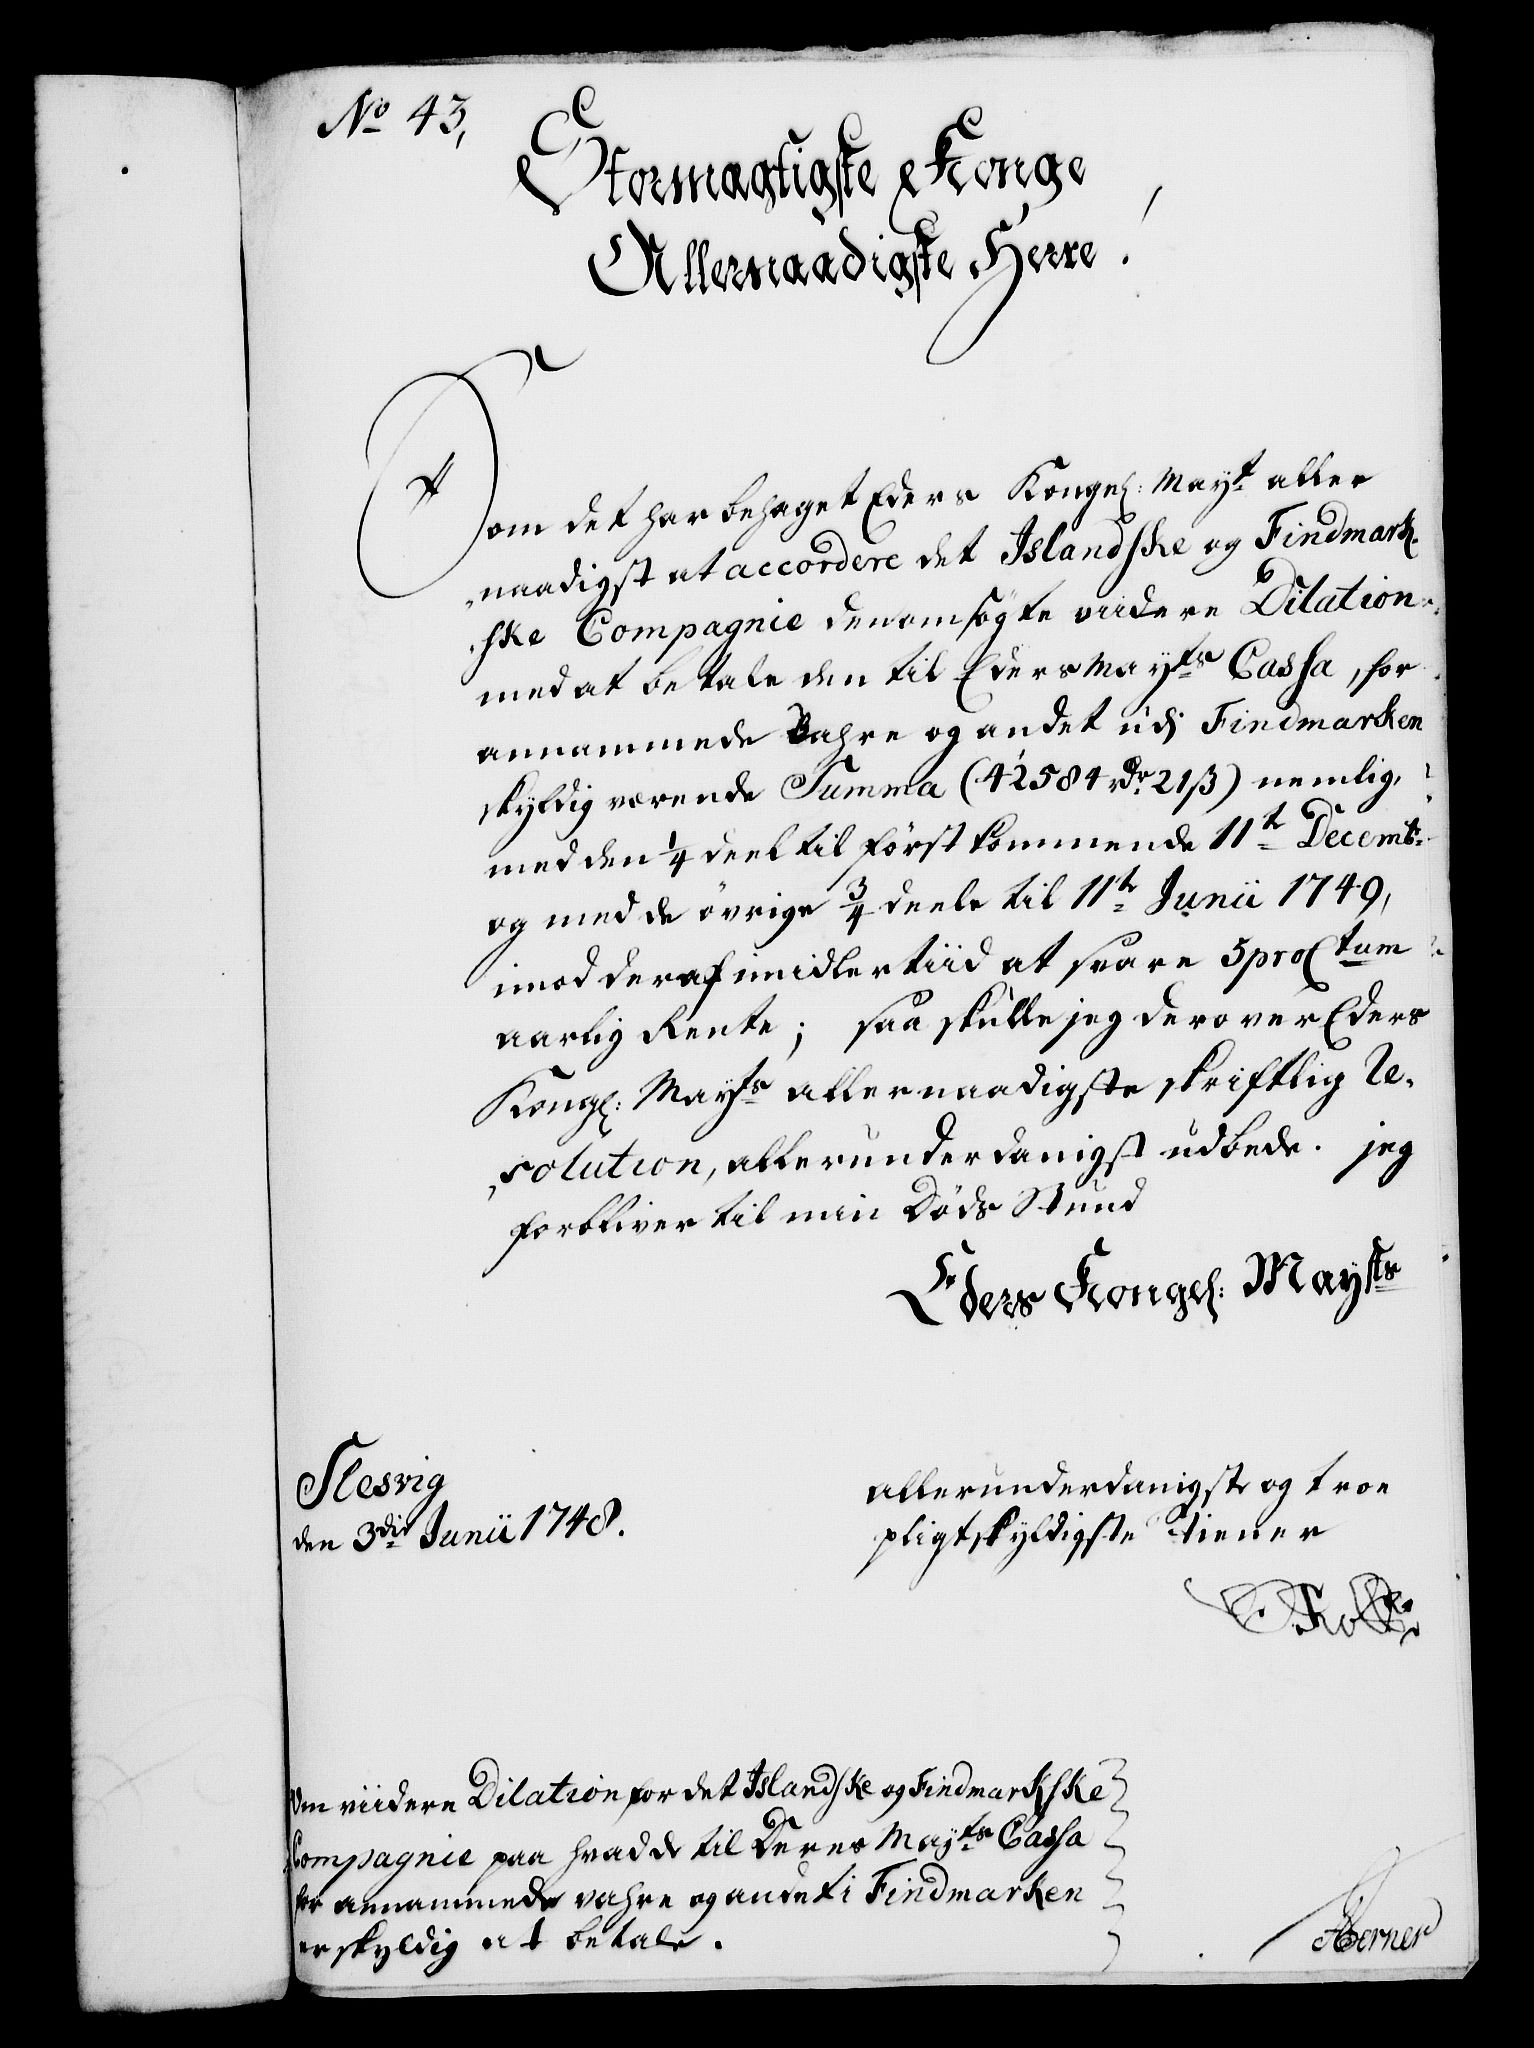 No 43,
Stormægtigste Konge
Allernaadigste Herre!
Som det har behaget Eders Kongel: Mayt aller
naadigst at accordere det Islandske og Findmark-
ske Compagnie den omsøgte viidere Dilation
med at betale den til Eders Mayts Cassa, for
annammede Vahre og andet udj Findmarken
skyldig værende Summa (42584 rdr 21 ß) nemlig,
med den 1/4 deel til først kommende 11te Decembr
og med de øvrige 3/4 deele til 11te Junii 1749,
imod deraf imidlertiid at svare 5 pro Ctum
aarlig Rente; saa skulle jeg derover Eders
Kongl: Mayts allernaadigste skriftlig Re-
solution, allerunderdanigst udbede. jeg
forbliver til min Døds Stund
Eders Kongel: Mayts
Slesvig
den 3die Junii 1748.
allerunderdanigste og troe
pligtskyldigste tiener
Om viidere Dilation for det Islandske og Findmarkske
Compagnie paa hvad de til Deres Mayts Cassa
for annammede vahre og andet i Findmarken
er skyldig at betale.